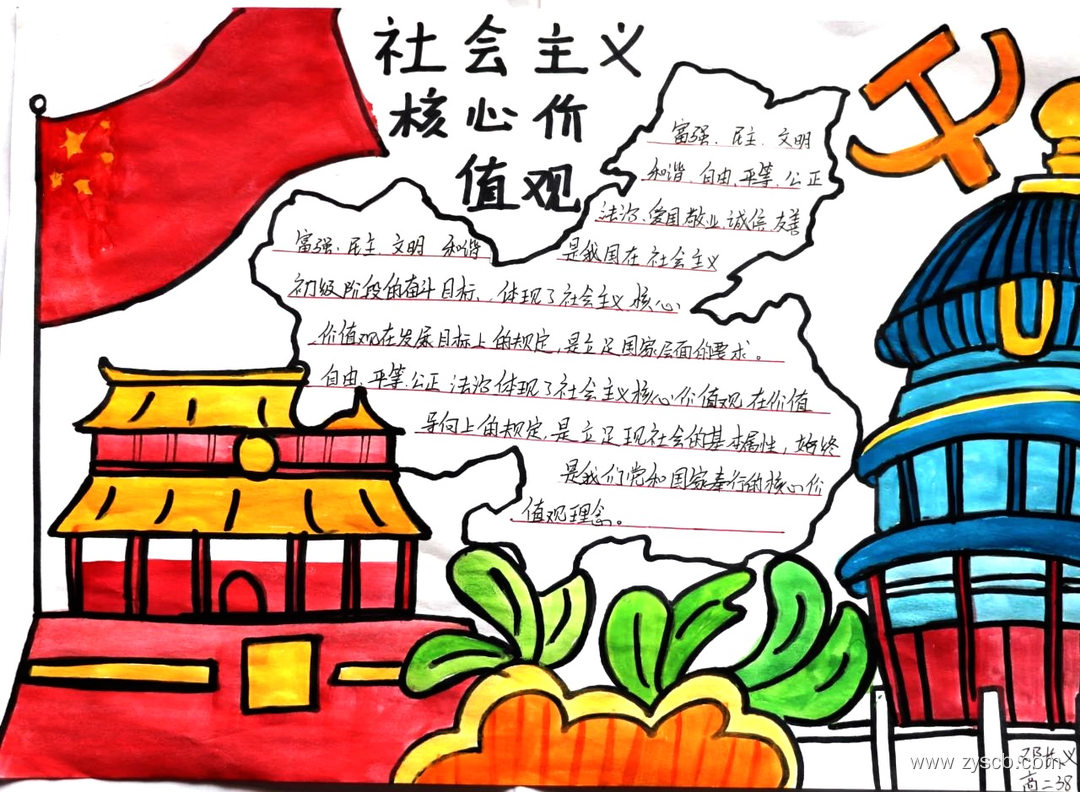 社会主义
核心价
值观
富强、民主、文明
和谐、自由、平等、公正
法治、爱国敬业、诚信、友善
富强、民主、文明 和谐 是我国在社会主义
初级阶段的奋斗目标、体现了社会主义核心
价值观在发展目标上的规定,是立足国家层面的要求。
自由、平等、公正 法治体现了社会主义核心价值观在价值
导向上的规定,是立足现社会的基本属性,始终
是我们党和国家奉行的核心价
值观理念。
www.zyscb.com
高二38